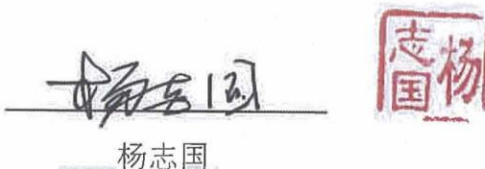 杨志国
杨志国
杨志国